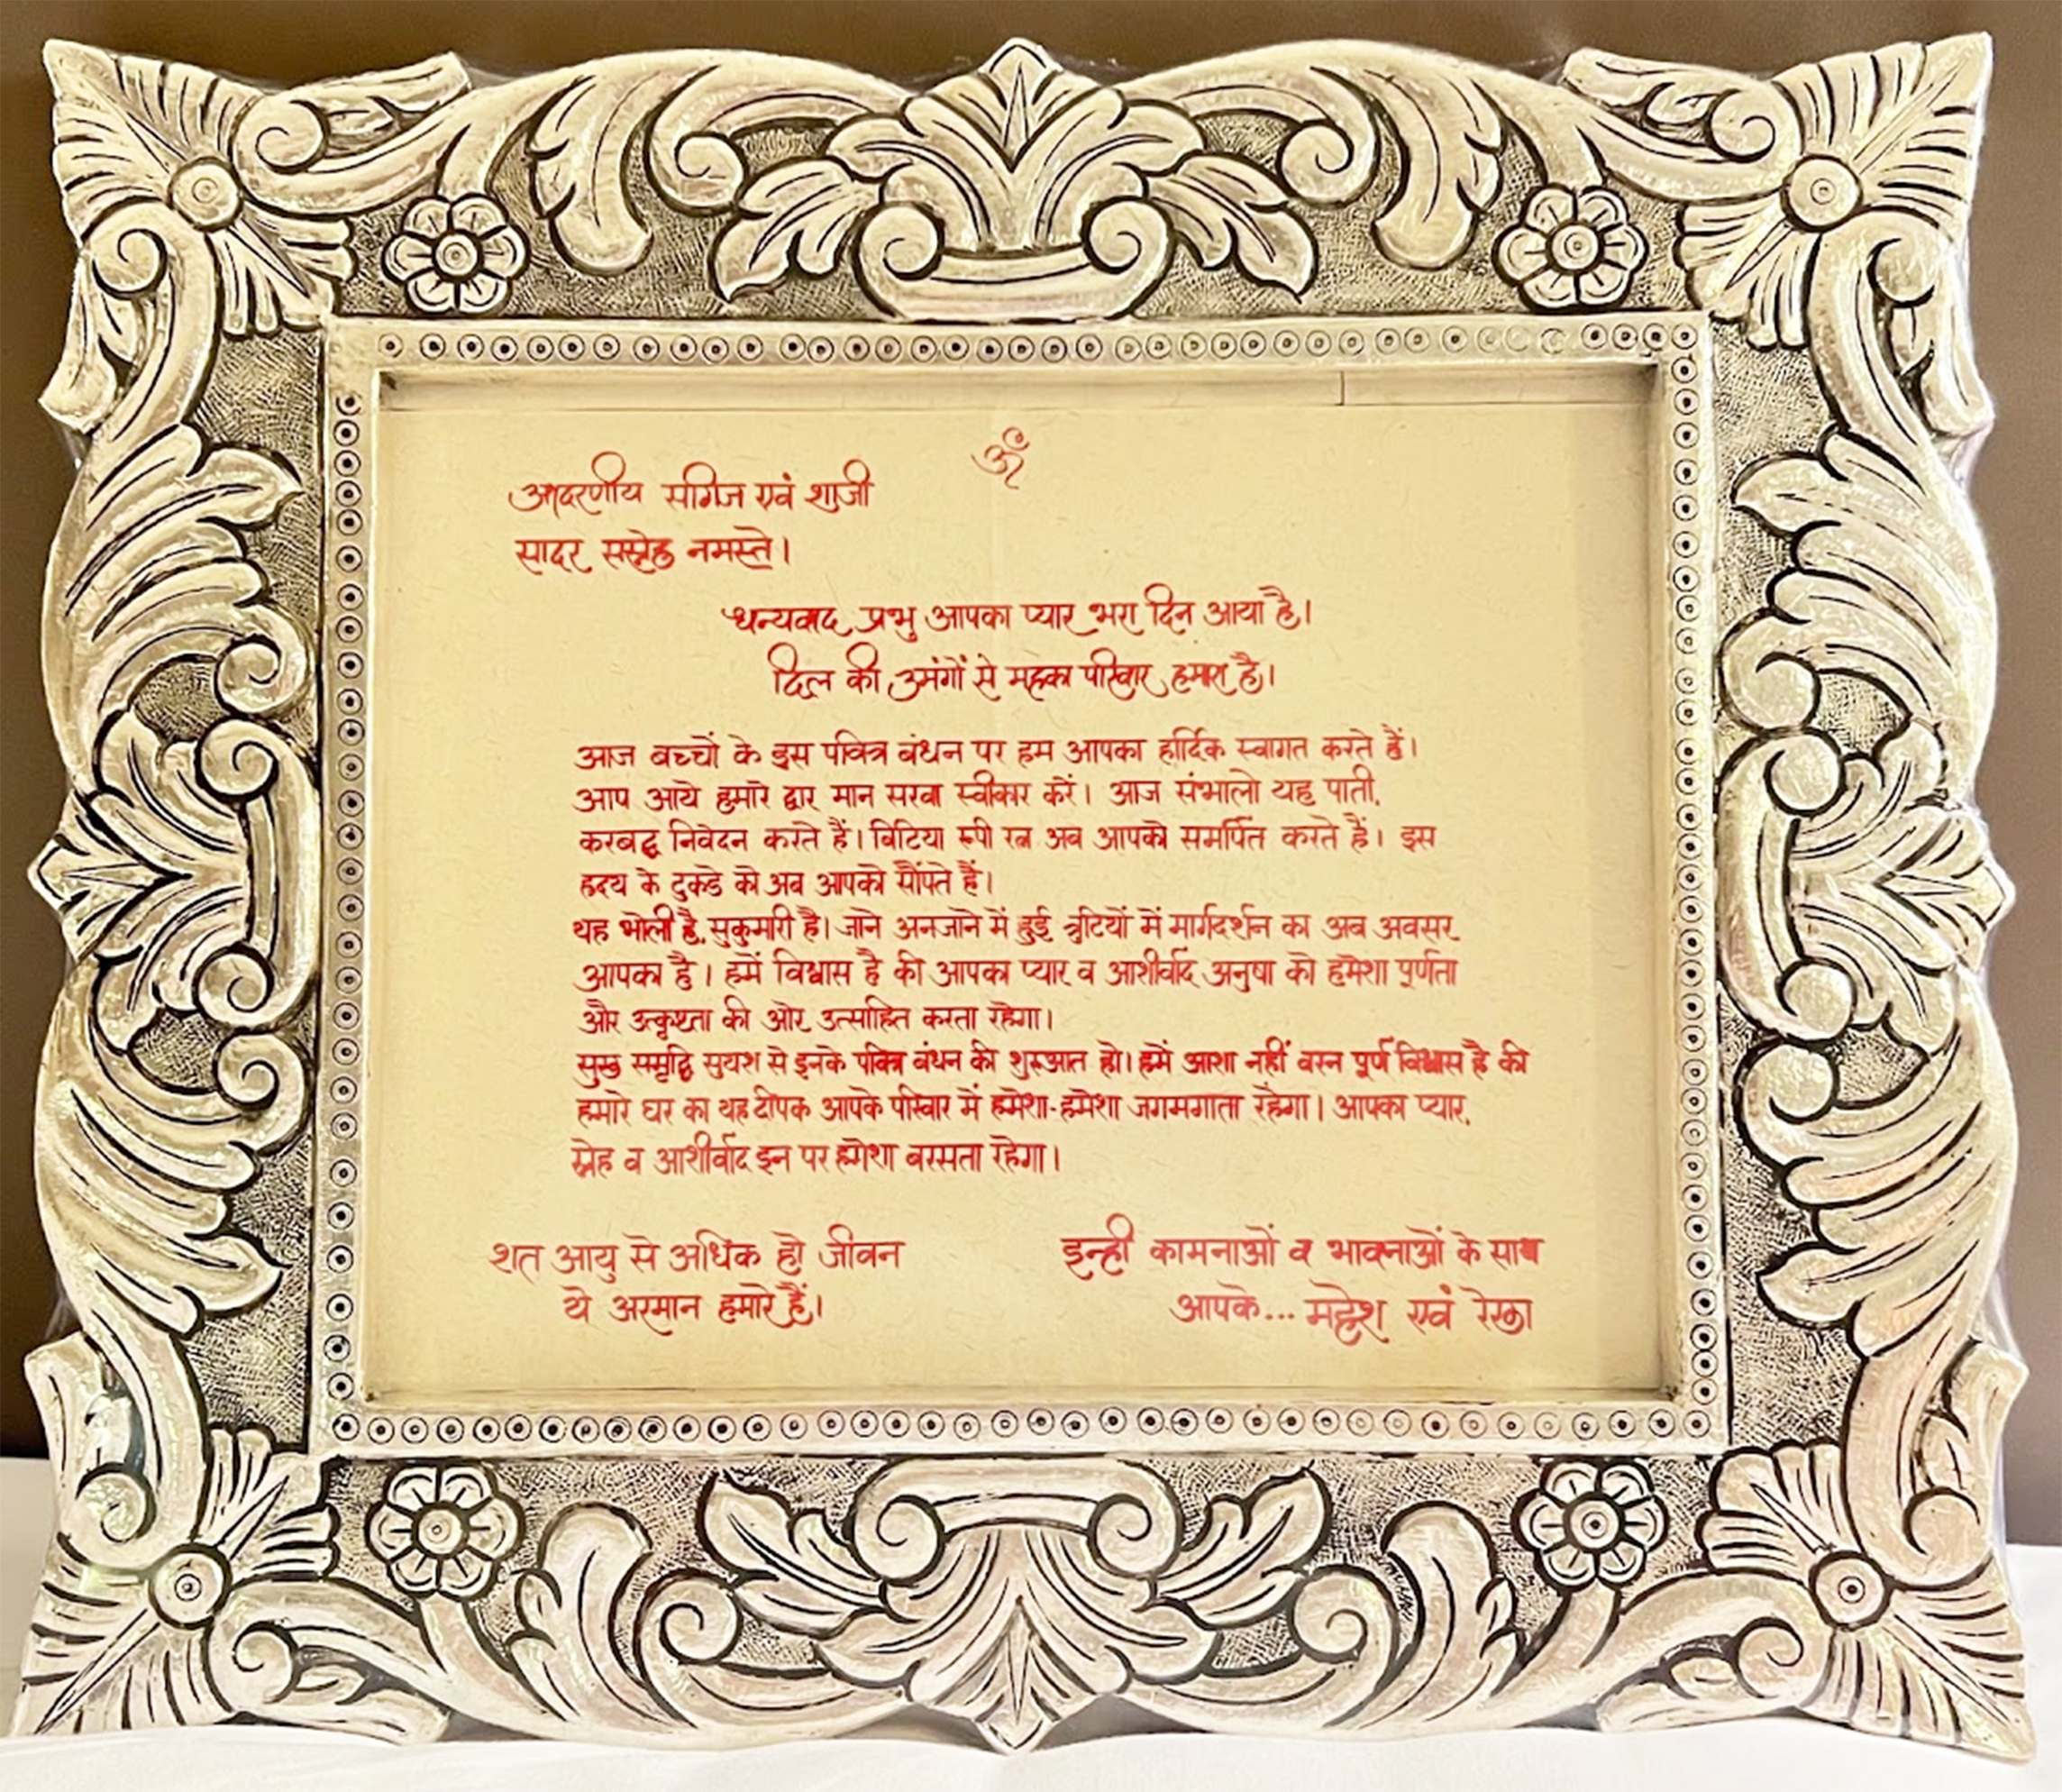 ॐ
आदरणीय सगिज एवं शाजी
सादर सस्नेह नमस्ते।
धन्यवाद प्रभु आपका प्यार भरा दिन आया है।
दिल की उमंगों से महका परिवार हमारा है।
आज बच्चों के इस पवित्र बंधन पर हम आपका हार्दिक स्वागत करते हैं।
आप आये हमारे द्वार मान सरवा स्वीकार करें। आज संभालो यह पाती,
करबद्ध निवेदन करते हैं। बिटिया रूपी रत्न अब आपको समर्पित करते हैं। इस
ह्रदय के टुकडे को अब आपको सौंपते हैं।
यह भोली है, सुकुमारी है। जाने अनजाने में हुई त्रुटियों में मार्गदर्शन का अब अवसर
आपका है। हमें विश्वास है की आपका प्यार व आशीर्वाद अनुषा को हमेशा पूर्णता
और उत्कृष्ता की ओर उत्साहित करता रहेगा।
सुख समृद्धि सुयश से इनके पवित्र बंधन की शुरूआत हो। हमें आशा नहीं वरन पूर्ण विश्वास है की
हमारे घर का यह दीपक आपके परिवार में हमेशा-हमेशा जगमगाता रहेगा। आपका प्यार,
स्नेह व आशीर्वाद इन पर हमेशा बरसता रहेगा।
शत आयु से अधिक हो जीवन
ये अरमान हमारे हैं।
इन्ही कामनाओं व भावनाओं के साथ
आपके... महेश एवं रेखा